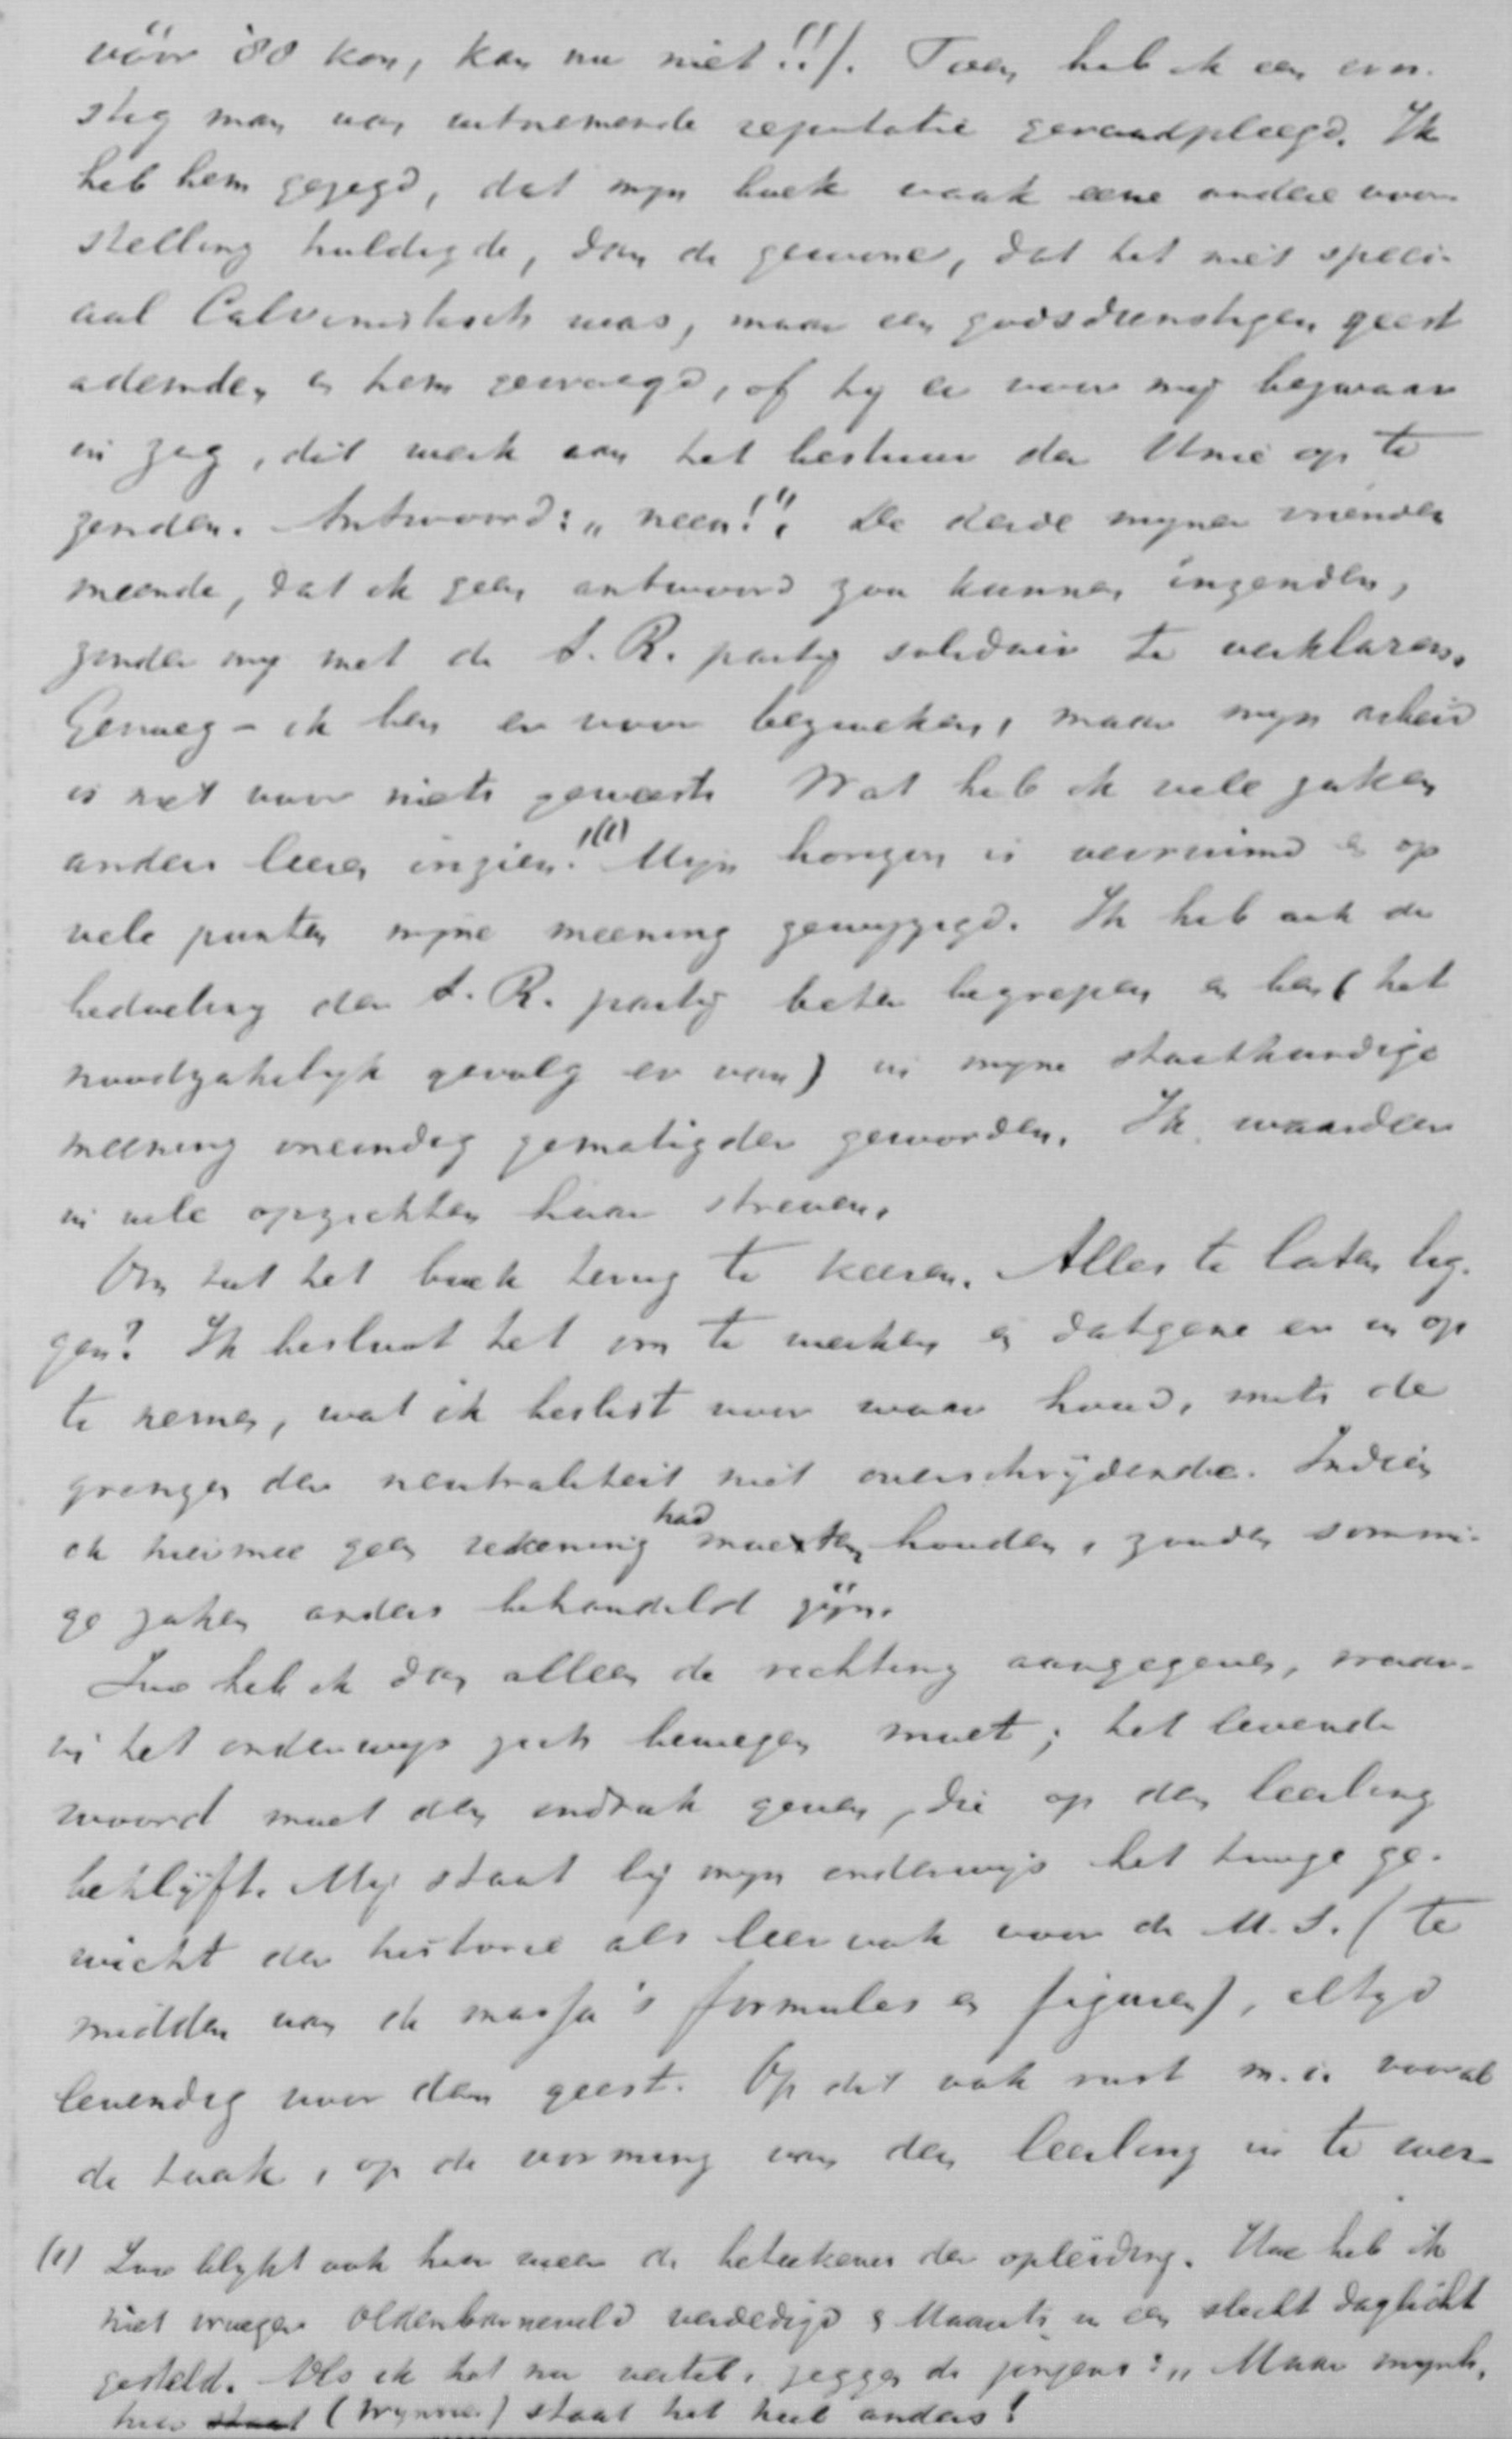 vóór '88 kon, kan nu niet!!). Toen heb ik een ern-
stig man van uitnemende reputatie geraadpleegd. Ik
heb hem gezegd, dat mijn boek vaak eene andere voor-
stelling huldigde, dan de gewone, dat het niet speci-
aal Calvinistisch was, maar een godsdienstigen geest
ademde, en hem gevraagd, of hij er voor mij bezwaar
in zag, dit werk aan het bestuur der Unie op te
zenden. Antwoord: „neen!". De derde mijner vrienden
meende, dat ik geen antwoord zou kunnen inzenden,
zonder mij met de A. R. partij solidair te verklaren.
Genoeg - ik ben er voor bezweken, maar mijn arbeid
is niet voor niets geweest. Wat heb ik vele zaken
anders leeren inzien!(1) Mijn horizon is verruimd en op
vele punten mijne meening gewijzigd. Ik heb ook de
bedoeling der A. R. partij beter begrepen en ben (het
noodzakelijk gevolg er van) in mijne staatkundige
meening oneindig gematigder geworden. Ik waardeer
in vele opzichten haar streven.
Om tot het boek terug te keeren. Alles te laten lig-
gen? Ik besloot het om te werken en datgene er in op
te nemen, wat ik beslist voor waar houd, mits de
grenzen der neutraliteit niet overschrijdende. Indien
ik hiermee geen rekening had moeten houden, zouden sommi-
ge zaken anders behandeld zijn.
Zoo heb ik dan alleen de richting aangegeven, waar-
in het onderwijs zich bewegen moet; het levende
woord moet den indruk geven, die op den leerling
beklijft. Mij staat bij mijn onderwijs het hooge ge-
wicht der historie als leervak voor de M. S. (te
midden van de massa's formules en figuren), altijd
levendig voor den geest. Op dit vak rust m. i. vooral
de taak, op de vorming van den leerling in te wer-
(1) Zoo blijkt ook hier weer de beteekenis der opleiding. Hoe heb ik
niet vroeger Oldenbarneveld verdedigd & Maurits in een slecht daglicht
gesteld. Als ik het nu vertel, zeggen de jongens: „Maar mijnh.,
hier staat (Wijnne) staat het heel anders!